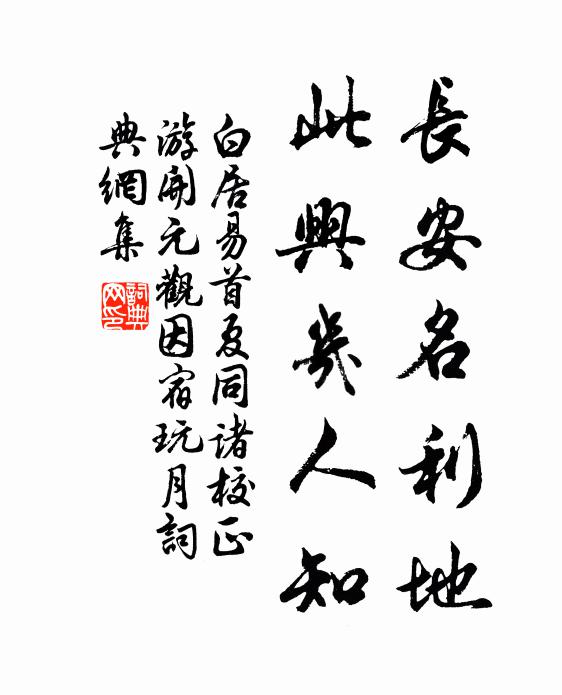 長安名利地
此興幾人知
白居易首夏同諸校正
游開元觀因宿玩月詞
典網集
詞典
网印